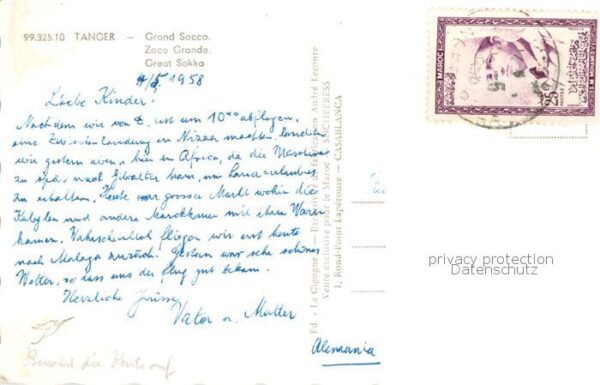 99.325.10 TANGER — Grand Socco.
Zoco Grande.
Great Sokko
4/5. 1958
Liebe Kinder!
Nachdem wir von Z. erst um 10⁴⁰ abflogen,
eine Zwischenlandung in Nizza machten, landeten
wir gestern abend hier in Africa, da die Maschine
zu spät nach Gibraltar kam, um Landeerlaubnis
zu erhalten. Heute war grosser Markt wohin die
Kabylen und andere Marokkaner mit ihren Waren
kamen. Wahrscheinlich fliegen wir erst heute
nach Malaga zurück. Gestern war sehr schönes
Wetter, so dass uns der Flug gut bekam.
Herzliche Grüsse
Vater u. Mutter
Alemania
Bewahrt die Karte auf
Ed. - La Cigogne - Exclusivité de fabrication André Leconte
Vente exclusive pour le Maroc : SOCHEPRESS
1, Rond-Point Lapérouse - CASABLANCA
MAROC
POSTES
25
privacy protection
Datenschutz